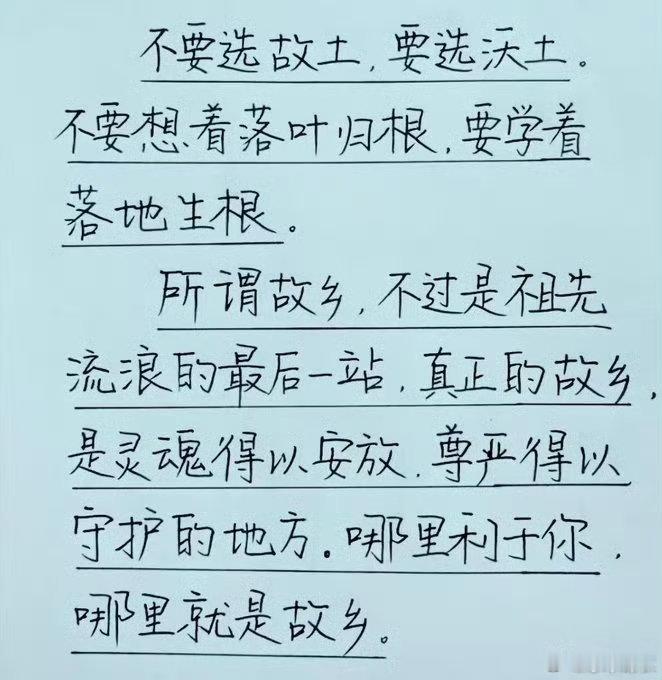 不要选故土,要选沃土。
不要想着落叶归根,要学着
落地生根。
所谓故乡,不过是祖先
流浪的最后一站,真正的故乡,
是灵魂得以安放,尊严得以
守护的地方.哪里利于你,
哪里就是故乡。